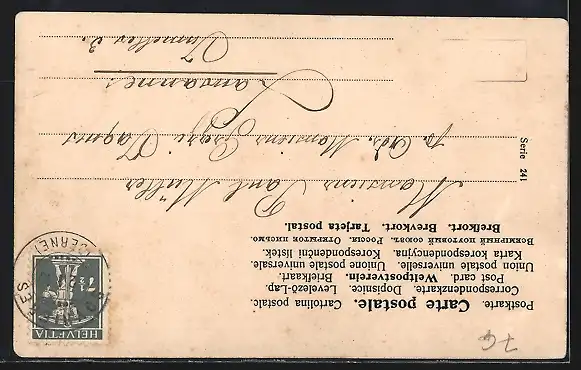 Postkarte. Carte postale. Cartolina postale.
Correspondenzkarte. Dopisnice. Levelező-Lap.
Post card. Weltpostverein. Briefkaart.
Union postale universelle. Unione postale universale.
Karta korespondencyjna. Korespondenční listek.
Всемірный почтовый союзъ. Россія. Открытое письмо.
Breifkort. Brevkort. Tarjeta postal.
Monsieur Paul Müller
Monsieur
Lausanne
Serie 241
HELVETIA
76